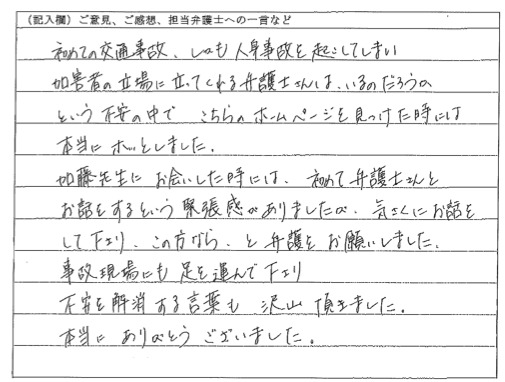 (記入欄)ご意見、ご感想、担当弁護士への一言など
初めての交通事故、しかも人身事故を起こしてしまい
加害者の立場に立ってくれる弁護士さんは、いるのだろうか
という不安の中で こちらのホームページを見つけた時には
本当にホッとしました。
加藤先生にお会いした時には、初めて弁護士さんと
お話をするという緊張感がありましたが、気さくにお話を
して下さり、この方なら、と弁護をお願いしました。
事故現場にも足を運んで下さり
不安を解消する言葉も沢山頂きました。
本当にありがとうございました。